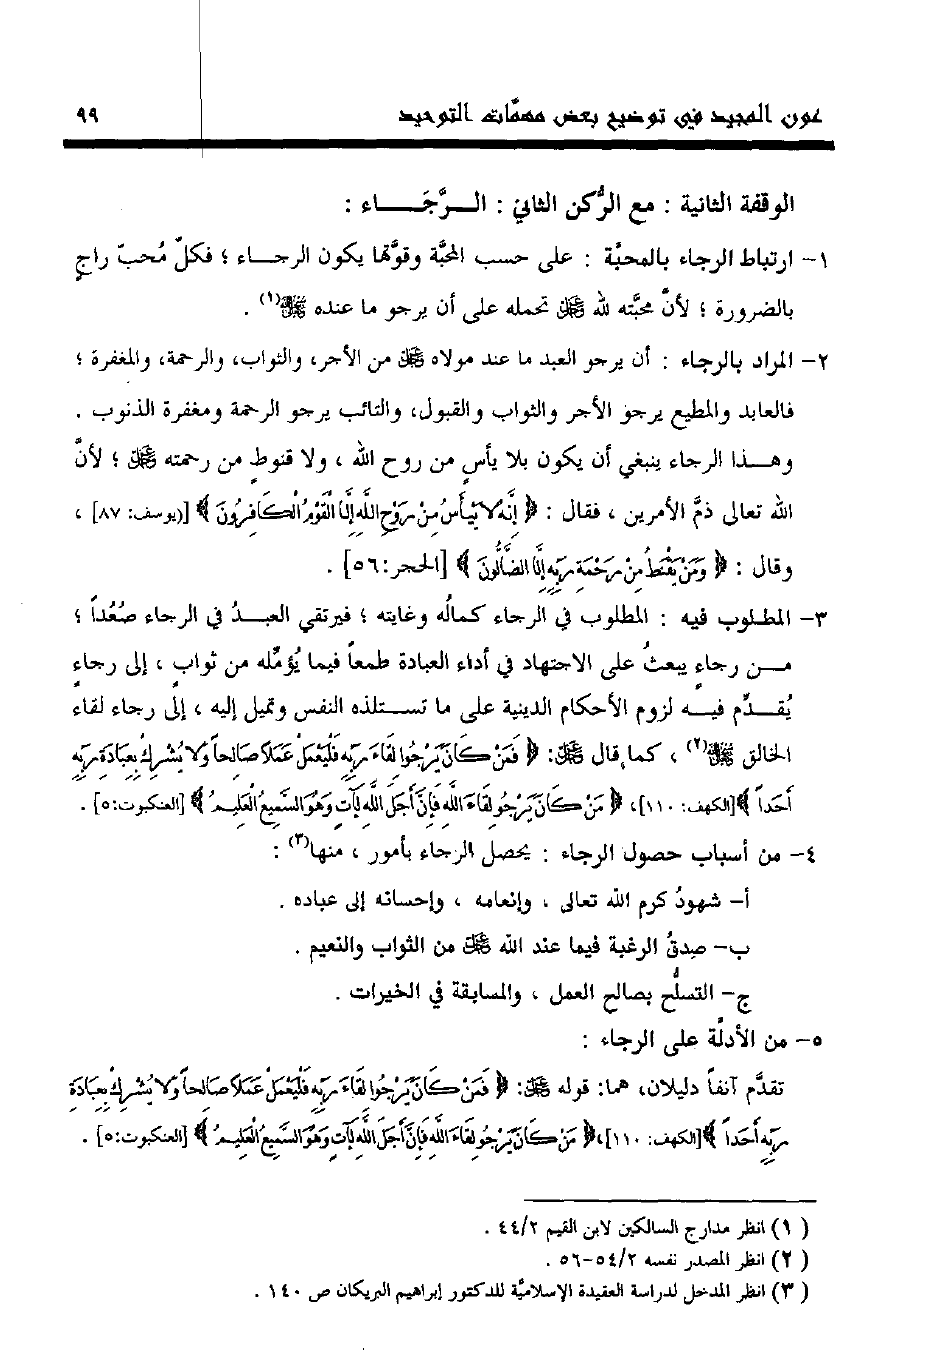 عون المجيد في توضيح بعض مهمَّات التوحيد ٩٩
الوقفة الثانية : مع الرُّكن الثاني : الــرَّجَـــاء :
١- ارتباط الرجاء بالمحبَّة : على حسب المحبَّة وقوَّتها يكون الرجـــاء ؛ فكلّ مُحبّ راجٍ
بالضرورة ؛ لأنَّ محبَّته لله ﷻ تحمله على أن يرجو ما عنده ﷻ(١) .
٢- المراد بالرجاء : أن يرجو العبد ما عند مولاه ﷻ من الأجر، والثواب، والرحمة، والمغفرة ؛
فالعابد والمطيع يرجو الأجر والثواب والقبول، والتائب يرجو الرحمة ومغفرة الذنوب .
وهـــذا الرجاء ينبغي أن يكون بلا يأسٍ من روح الله ، ولا قنوطٍ من رحمته ﷻ ؛ لأنَّ
الله تعالى ذمَّ الأمرين ، فقال : ﴿ إِنَّهُ لَا يَيْأَسُ مِنْ رَوْحِ اللَّهِ إِلَّا الْقَوْمُ الْكَافِرُونَ ﴾ [(يوسف: ٨٧] ،
وقال : ﴿ وَمَنْ يَقْنَطُ مِنْ رَحْمَةِ رَبِّهِ إِلَّا الضَّالُّونَ ﴾ [الحجر:٥٦] .
٣- المطلوب فيه : المطلوب في الرجاء كمالُه وغايته ؛ فيرتقي العبــدُ في الرجاء صُعُداً ؛
مــن رجاءٍ يبعثُ على الاجتهاد في أداء العبادة طمعاً فيما يُؤمِّله من ثوابٍ ، إلى رجاءٍ
يُقـــدِّم فيـــه لزوم الأحكام الدينية على ما تســتلذه النفس وتميل إليه ، إلى رجاء لقاء
الخالق ﷻ(٢) ، كما قال ﷻ: ﴿ فَمَنْ كَانَ يَرْجُوا لِقَاءَ رَبِّهِ فَلْيَعْمَلْ عَمَلًا صَالِحاً وَلَا يُشْرِكْ بِعِبَادَةِ رَبِّهِ
أَحَداً ﴾[الكهف: ١١٠]، ﴿ مَنْ كَانَ يَرْجُو لِقَاءَ اللَّهِ فَإِنَّ أَجَلَ اللَّهِ لَآتٍ وَهُوَ السَّمِيعُ الْعَلِيمُ ﴾ [العنكبوت:٥] .
٤- من أسباب حصول الرجاء : يحصل الرجاء بأمور ، منها(٣) :
أ- شهودُ كرم الله تعالى ، وإنعامه ، وإحسانه إلى عباده .
ب- صِدقُ الرغبة فيما عند الله ﷻ من الثواب والنعيم .
ج- التسلُّح بصالح العمل ، والمسابقة في الخيرات .
٥- من الأدلَّة على الرجاء :
تقدَّم آنفاً دليلان، هما: قوله ﷻ: ﴿ فَمَنْ كَانَ يَرْجُوا لِقَاءَ رَبِّهِ فَلْيَعْمَلْ عَمَلًا صَالِحاً وَلَا يُشْرِكْ بِعِبَادَةِ
رَبِّهِ أَحَداً ﴾[الكهف: ١١٠]،﴿ مَنْ كَانَ يَرْجُو لِقَاءَ اللَّهِ فَإِنَّ أَجَلَ اللَّهِ لَآتٍ وَهُوَ السَّمِيعُ الْعَلِيمُ ﴾ [العنكبوت:٥] .
( ١) انظر مدارج السالكين لابن القيم ٤٤/٢ .
( ٢) انظر المصدر نفسه ٥٤/٢-٥٦ .
( ٣) انظر المدخل لدراسة العقيدة الإسلاميَّة للدكتور إبراهيم البريكان ص ١٤٠ .